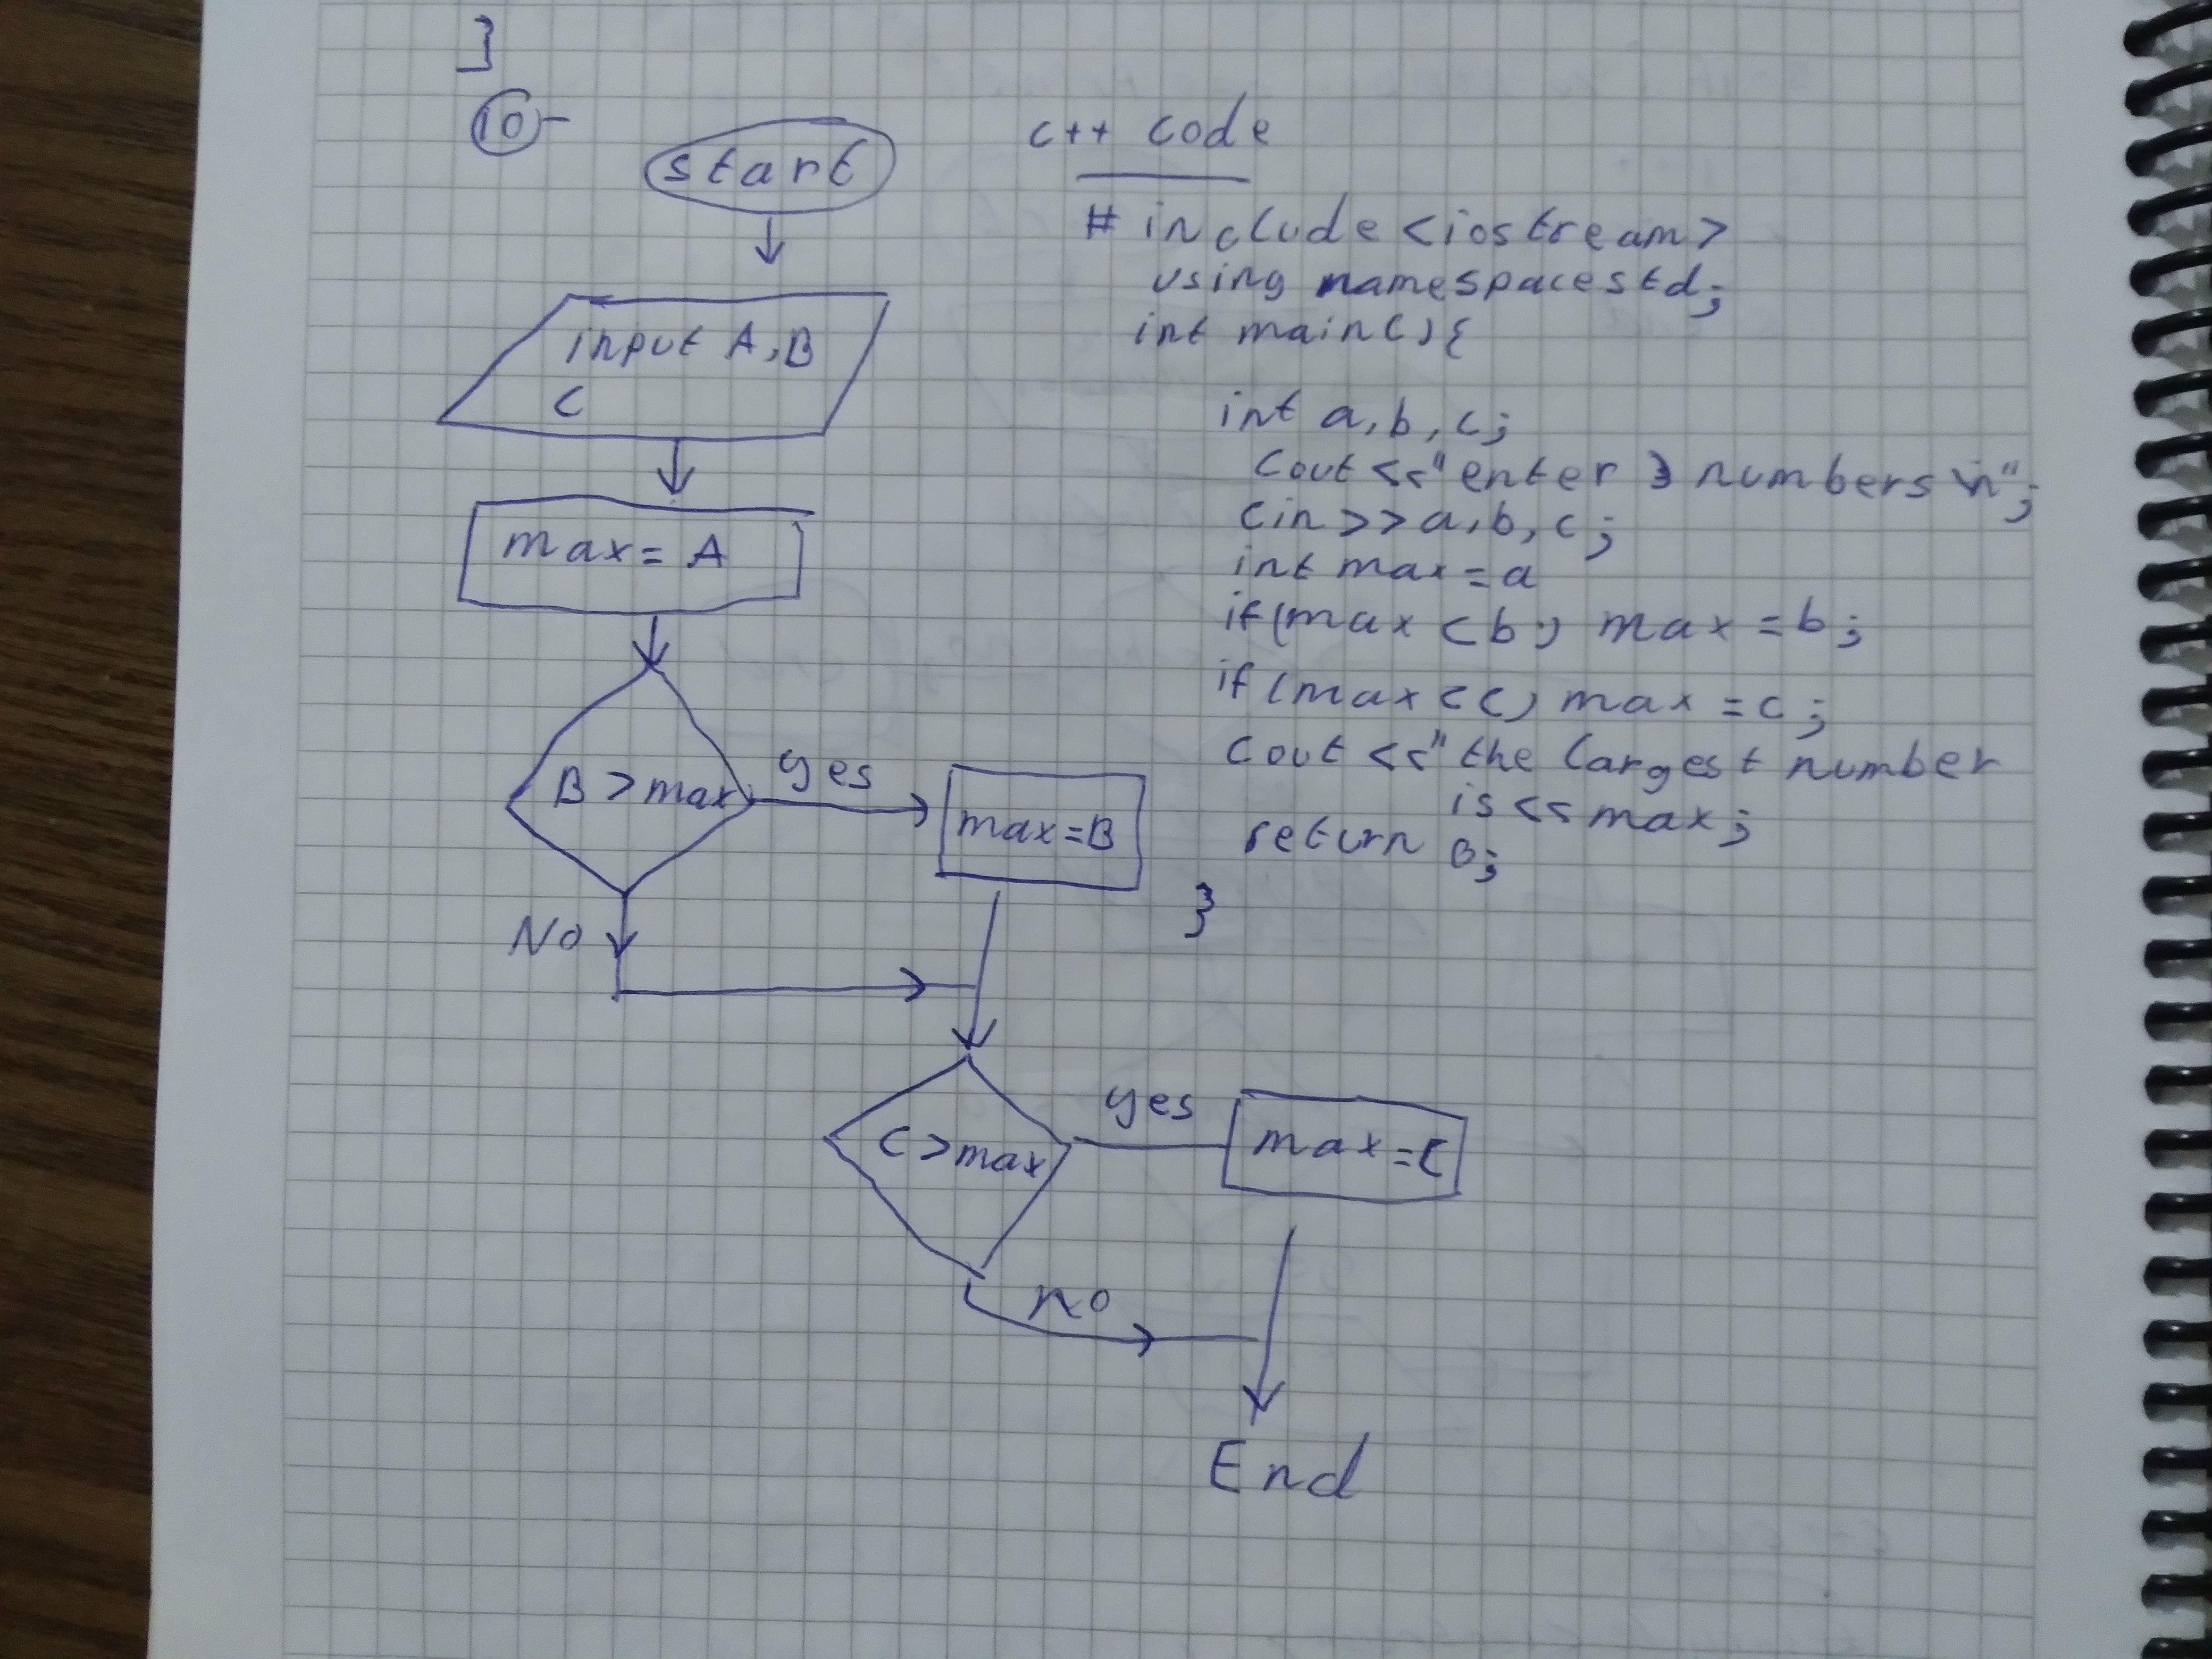 }
10-
start
input A,B
C
max = A
B > max
yes
max=B
No
C >max
yes
max=C
no
End
c++ code
# include <iostream>
using namespace std;
int main() {
int a, b, c;
cout <<" enter 3 numbers \n";
cin >> a, b, c;
int max = a
if (max < b) max = b;
if (max < c) max = c;
cout <<" the largest number
is << max;
return 0;
}